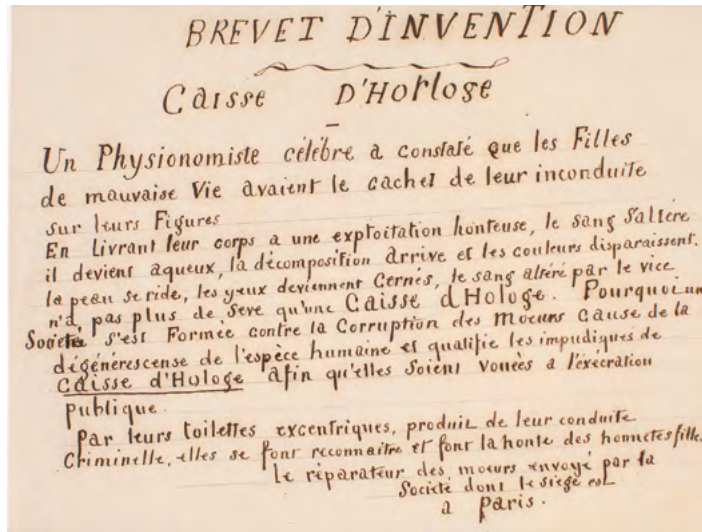 BREVET D'INVENTION
Caisse D'Horloge
Un Physionomiste célèbre a constaté que les Filles
de mauvaise Vie avaient le cachet de leur inconduite
sur leurs Figures
En Livrant leur corps a une exploitation honteuse, le sang S'altère
il devient aqueux, la décomposition Arrive et les couleurs disparaissent.
la peau se ride, les yeux deviennent Cernés, le sang altéré par le vice
n'a pas plus de Seve qu'une Caisse d'Hologe. Pourquoi un
Société s'est Formée contre la Corruption des Moeurs Cause de la
dégénérescense de l'espèce humaine et qualifie les impudiques de
Caisse d'Hologe afin qu'elles Soient vouées a l'éxécration
publique.
Par leurs toilettes excentriques, produit de leur conduite
Criminelle, elles se font reconnaitre et font la honte des honnetes filles.
Le réparateur des moeurs envoyé par la
Société dont le siège est
a Paris.